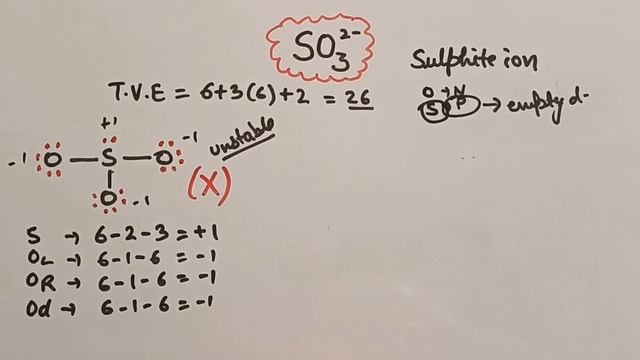 SO₃²⁻
Sulphite ion
T.V.E = 6+3(6)+2 = 26
O N
S P → empty d-
+1
-1 O — S — O -1
unstable
O -1
(X)
S → 6-2-3 = +1
OL → 6-1-6 = -1
OR → 6-1-6 = -1
Od → 6-1-6 = -1